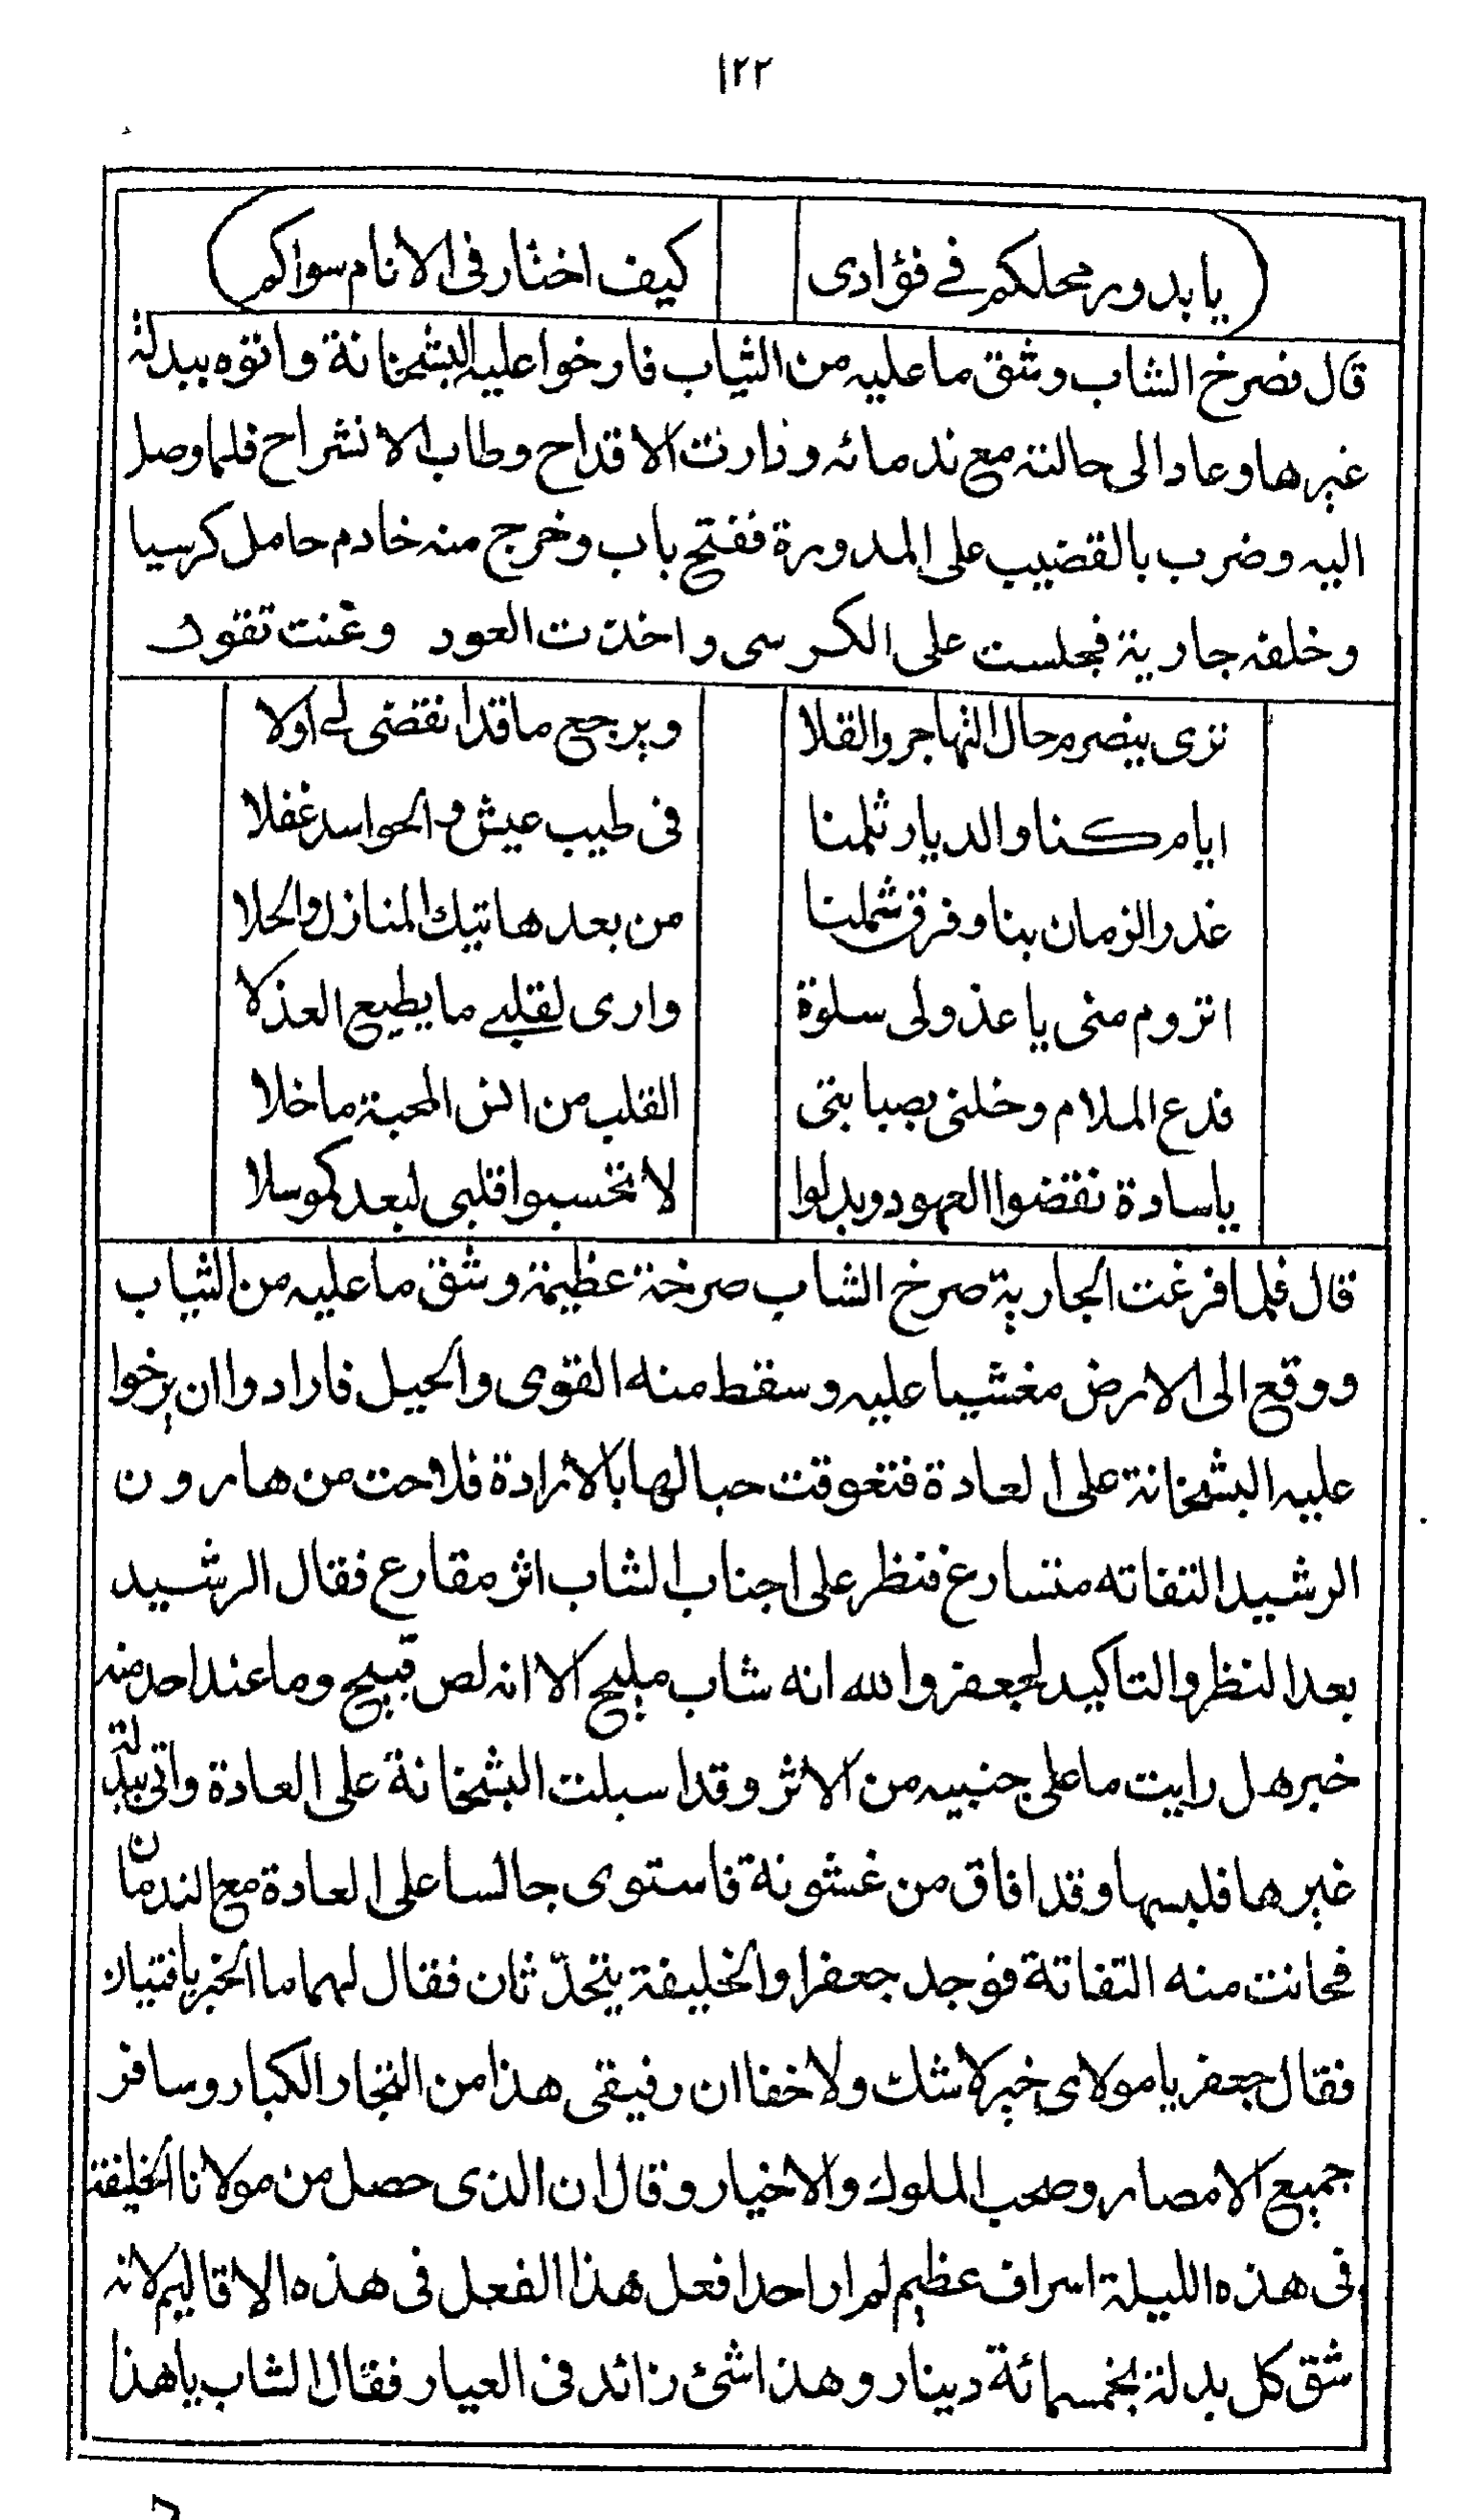 ١٢٢
يا بدور محلكم في فؤادى كيف اختار فى الانام سواكم
قال فصرخ الشاب وشق ما عليه من الثياب فارخوا عليه البشخانة واتوه ببدلة
غيرها وعاد الى حالته مع ندمائه ودارت الاقداح وطاب الانشراح فلما وصل
اليه وضرب بالقضيب على المدورة ففتح باب وخرج منه خادم حامل كرسيا
وخلفه جارية فجلست على الكرسى واخذت العود وغنت تقول
ترى ينصرم حال التهاجر والقلا ويرجع ما قد انقضى لى اولا
ايام كنا والديار تلمنا فى طيب عيش والحواسد غفلا
غدر الزمان بنا وفرق شملنا من بعد هاتيك المنازل والحلا
اتروم منى يا عذولى سلوة وارى لقلبي ما يطيع العذلا
فدع الملام وخلنى بصبابتى القلب من انس المحبة ما خلا
يا سادة نقضوا العهود وبدلوا لا تحسبوا قلبى لبعدكمو سلا
قال فلما فرغت الجارية صرخ الشاب صرخة عظيمة وشق ما عليه من الثياب
ووقع الى الارض مغشيا عليه وسقط منه القوى والحيل فارادوا ان يرخوا
عليه البشخانة على العادة فتعوقت حبالها بالارادة فلاحت من هارون
الرشيد التفاته منتسارع فنظر على اجناب الشاب اثر مقارع فقال الرشيد
بعد النظر والتاكيد لجعفر والله انه شاب مليح الا انه لص قبيح وما عند احد منه
خبر هل رايت ما على جنبيه من الاثر وقد اسبلت البشخانة على العادة واتى ببدلة
غيرها فلبسها وقد افاق من غشونة فاستوى جالسا على العادة مع الندمان
فحانت منه التفاتة فوجد جعفرا والخليفة يتحدّثان فقال لهما ما الخبر يا فتيان
فقال جعفر يا مولاى خير لا شك ولا خفا ان رفيقى هذا من التجار الكبار وسافر
جميع الامصار وصحب الملوك والاخيار وقال ان الذى حصل من مولانا الخليفة
فى هذه الليلة اسراف عظيم لم ار احدا فعل هذا الفعل فى هذه الاقاليم لانه
شق كل بدلة بخمسمائة دينار وهذا شئ زائد فى العيار فقال الشاب يا هذا